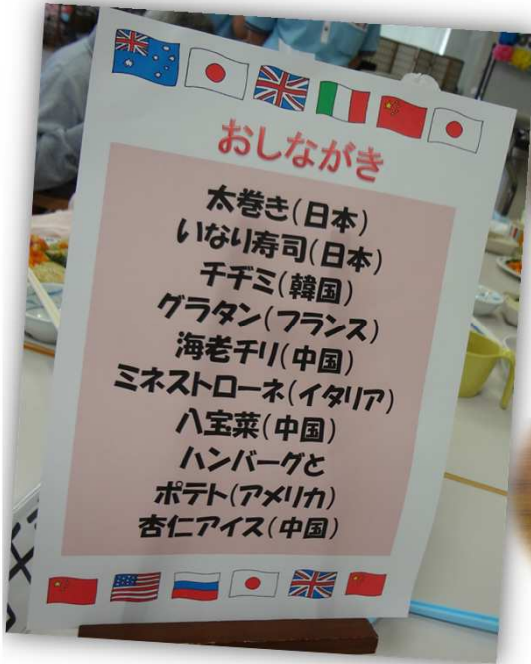 おしながき
太巻き(日本)
いなり寿司(日本)
チヂミ(韓国)
グラタン(フランス)
海老チリ(中国)
ミネストローネ(イタリア)
八宝菜(中国)
ハンバーグと
ポテト(アメリカ)
杏仁アイス(中国)